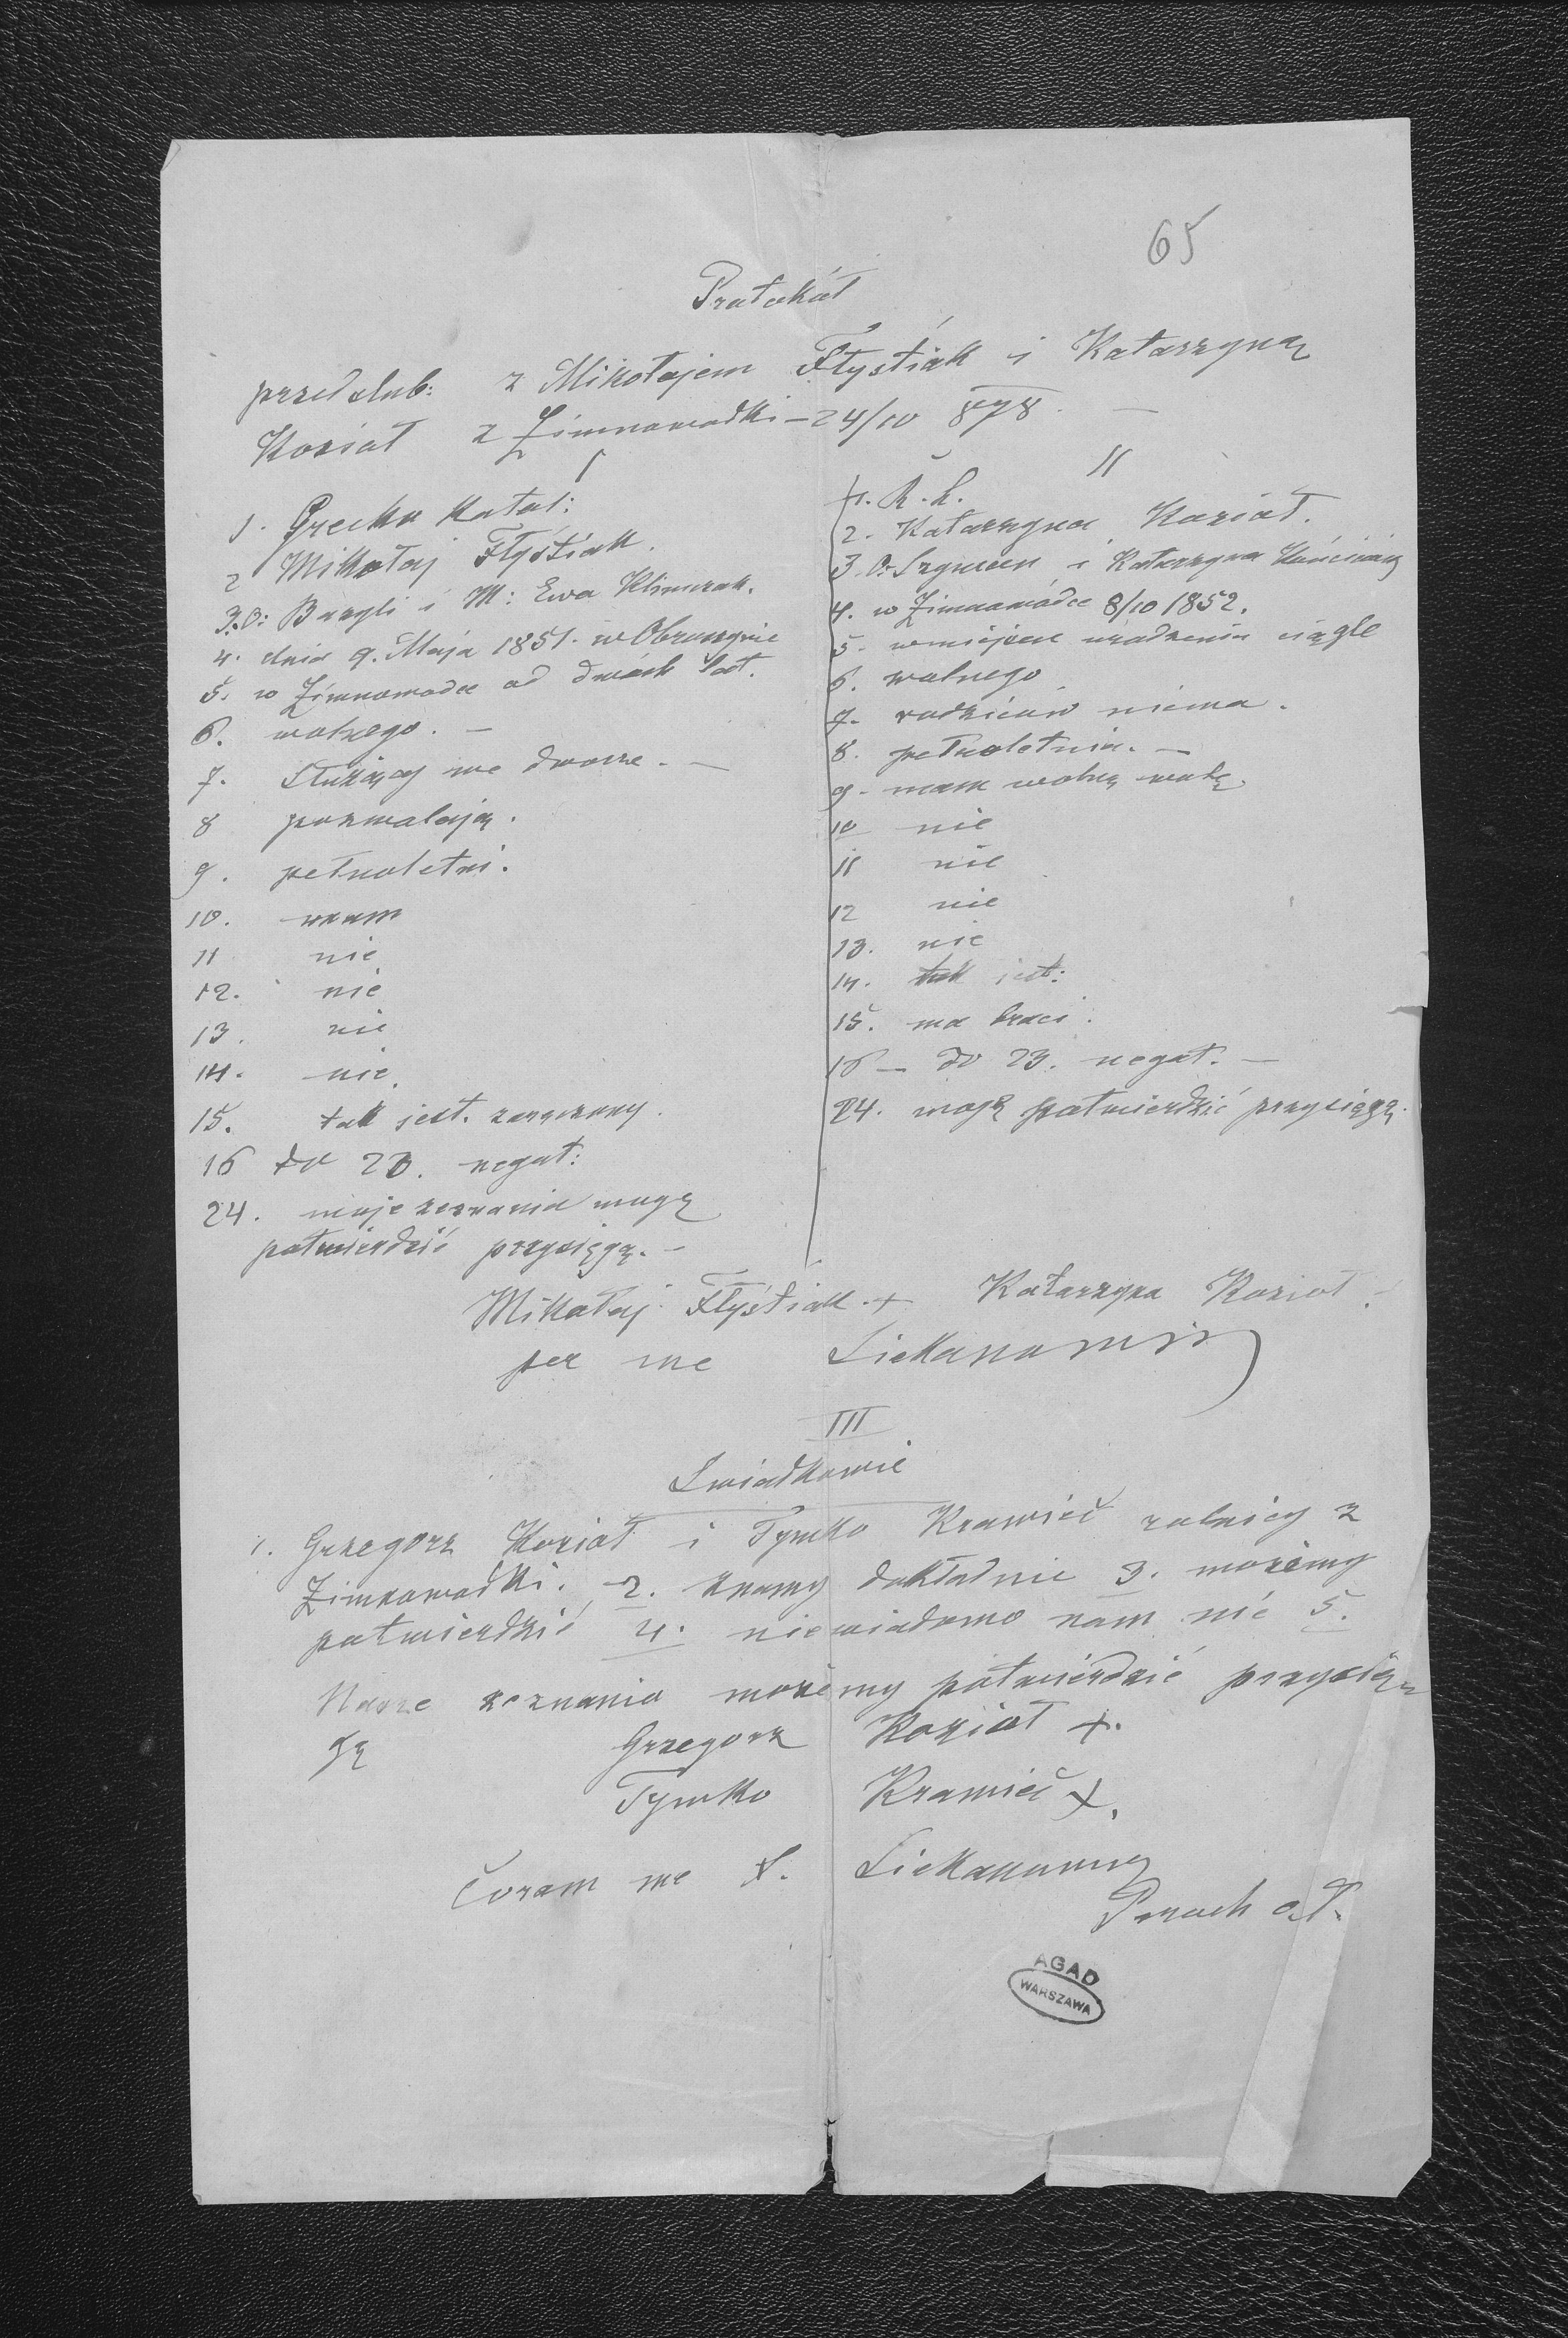 65
Protokół
przedślub: z Mikołajem Flyśtiak i Katarzyną
Kozioł z Zimnowodki – 24/10 878. —
I
1. Grecko katol:
2 Mikołaj Flyśtiak.
3. O: Bazyli i M: Ewa Klimczak.
4. dnia 9. Maja 1851. w Obroszynie
5. w Zimnowodce od dwóch lat.
6. wolnego. —
7. Służący we dworze. —
8 pozwalają.
9. pełnoletni.
10. znam
11 nie
12. nie
13. nie
14. nie.
15. tak jest. zaręczony.
16 do 23. negat:
24. moje zeznania mogę
potwierdzić przysięgą. —
II
1. R. k.
2. Katarzyna Kozioł.
3. O: Szymon i Katarzyna
4. w Zimnowódce 8/10 1852.
5. w miejscu urodzenia ciągle
6. wolnego
7. rodziców niema.
8. pełnoletnia. —
9. mam wolną wolę.
10 nie
11 nie
12 nie
13. nie
14. tak jest:
15. ma braci.
16 — do 23. negat. —
24. mogę potwierdzić przysięgą.
Mikołaj Flyśtiak + Katarzyna Kozioł
per me
III
Swiadkowie
1. Grzegorz Kozioł i Tymko Krawieć rolnicy z
Zimnowodki. 2. znamy dokładnie 3. możemy
potwierdzić 4. niewiadomo nam nić 5.
Nasze zeznania możemy potwierdzić przysię
gą Grzegorz Kozioł +.
Tymko Krawieć +.
Coram me
AGAD
WARSZAWA